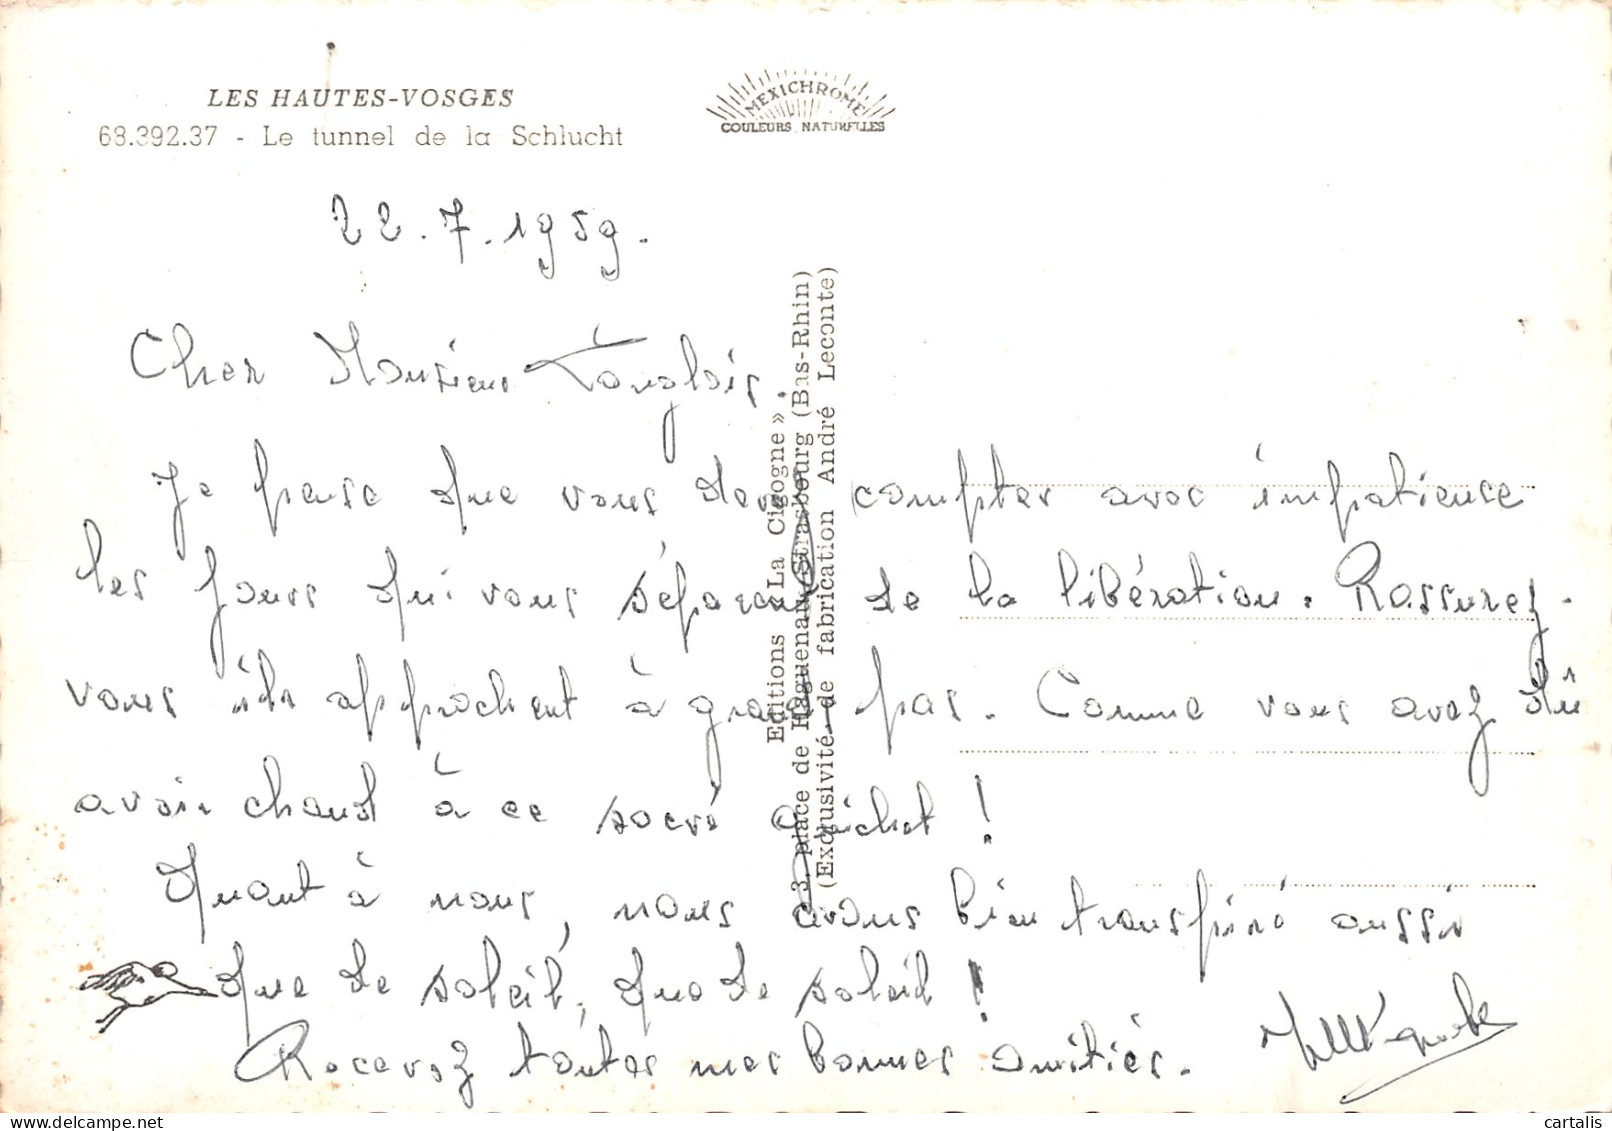 LES HAUTES-VOSGES
68.392.37 - Le tunnel de la Schlucht
MEXICHROME
COULEURS NATURELLES
22.7.1959.
Cher Monsieur Langlois.
Je pense que vous devez compter avec impatience
les jours qui vous séparent de la libération. Rassurez-
vous ils approchent à grands pas. Comme vous avez dû
avoir chaud à ce sacré guichet !
Quant à nous, nous avons bien transpiré aussi
que de soleil, que de soleil !
Recevez toutes mes bonnes amitiés.
Editions «La Cigogne»
3, place de Haguenau, Strasbourg (Bas-Rhin)
(Exclusivité de fabrication André Leconte)
cartalis